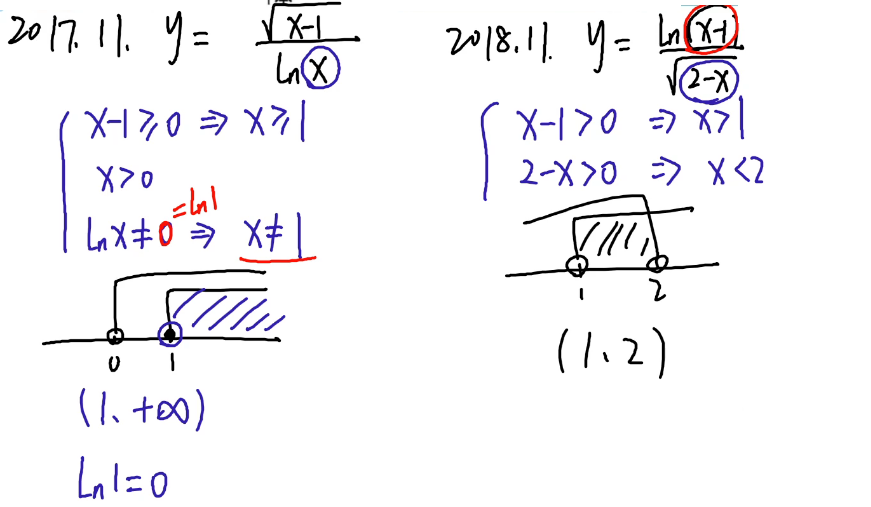 2017.11. y = √(x-1) / ln x
x-1≥0 ⇒ x≥1
x>0
ln x≠0 =ln1 ⇒ x≠1
0 1
(1、+∞)
ln1=0
2018.11. y = ln(x-1) / √(2-x)
x-1>0 ⇒ x>1
2-x>0 ⇒ x<2
1 2
(1、2)